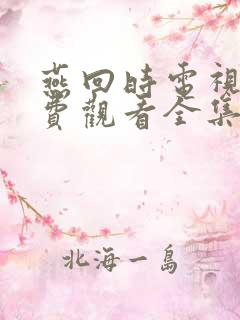 燕回時電視
費觀看全集
北海一島